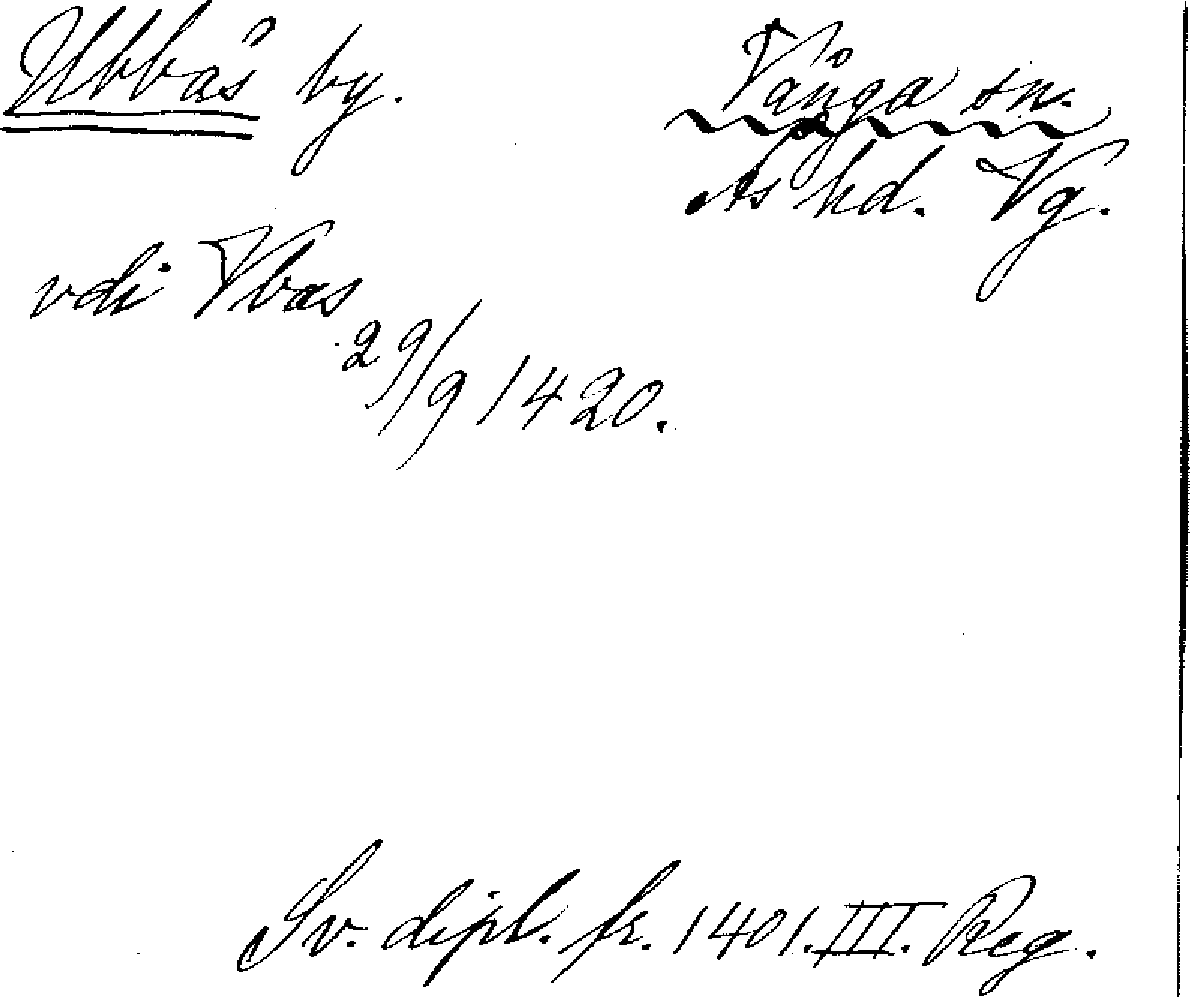 Ubbås by.
Vånga sn.
Ås hd. Vg.
vdi Vbas
29/9 1420.
Sv. dipl. fr. 1401. III. Reg.